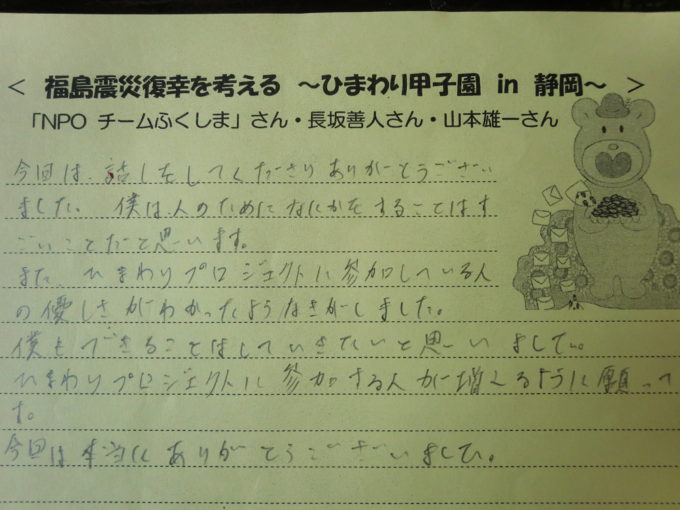 ＜ 福島震災復幸を考える ～ひまわり甲子園 in 静岡～ ＞
「NPO チームふくしま」さん・長坂善人さん・山本雄一さん
今回は、話しをしてくださりありがとうござい
ました。僕は人のためになにかをすることはす
ごいことだと思います。
また、ひまわりプロジェクトに参加している人
の優しさがわかったようなきがしました。
僕もできることはしていきたいと思いました。
ひまわりプロジェクトに参加する人が増えるように願って
す。
今回は本当にありがとうございました。